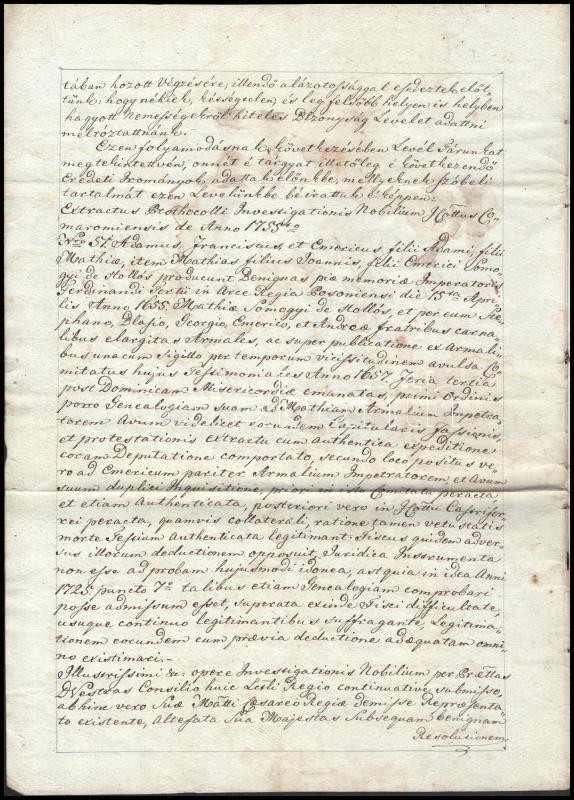 tában hozott Végzésére, illendő alázotossággal esedeztek előt„
tünk: hogy nékiek, készségesen, és leg felsőbb helyen is helyben
hagyott Nemességekről hiteles Bizonyság Levelet adattni
méltóztattnánk.
Ezen folyamodásnak következésében Levél Párunkat
megtekintettvén, onnét é tárgyat illetőleg é következendő
Eredeti Irományok adattak előnkbe, mellyeknek szóbéli
tartalmát ezen Levelünkbe béirattuk é képpen:
Extractus Prothocolli Investigationis Nobilium I. Cottus Co„
maromiensis de Anno 1755to
Nro 51. Adamus, Franciscus, et Emericus, filii Adami, filii
Mathiæ, item Mathias filius Joannis, filii Emerici Somo„
gyi de Hollós producunt Benignas piæ memoriæ Imperatoris
Ferdinandi Tertii in Arce Regia Posoniensi die 15ta Apri„
lis Anno 1655. Mathiæ Somogyi de Hollós, et per eum Ste„
phano, Blasio, Georgio, Emerico, et Andreæ fratribus carna„
libus elargitas Armales, ac super publicatione ex Armali„
bus una cum Sigillo per temporum vicissitudinem avulsa Co„
mitatus hujus Testimoniales Anno 1657. Feria tertia
post Dominicam Misericordiæ emanatas, primi Ordinis
porro Genealogiam suam ad Mathiam Armalium Impetra„
torem Avum videlicet eorundem Capitularis Fassionis,
et protestationis extractu cum Authentica expeditione
coram Deputatione comportato, secundo loco positus ve„
ro ad Emericum pariter Armalium Impetratorem, et Avum
suum duplici Inquisitione, priori in isto Comitatu peracta,
et etiam Authenticata, posteriori vero in I. Cottu Castrifer„
rei peracta, quamvis collaterali, ratione tamen vetustatis
morte Testium Authenticata legitimant. Fiscus quidem adver„
sus illorum deductionem opposuit, Juridica Instrumenta
non esse ad probam hujusmodi idonea, ast quia in idea Anni
1725. puncto 7o talibus etiam Genealogiam comprobari
posse admissum esset, superata exinde Fisci difficultate,
usuque continuo legitimantibus suffragante, Legitima„
tionem eorundem cum prævia deductione adæquatam omni„
no existimari.–
Illustrissimi &c. opere Investigationis Nobilium per Prættas
D Vestras Consilio huic Lctli Regio continuative submisso,
ab hinc vero Suæ Mätti Cæsareo Regiæ Demisse Repræsenta„
to existente, Altefata Sua Majestas Subsequam benignam
Resolutionem